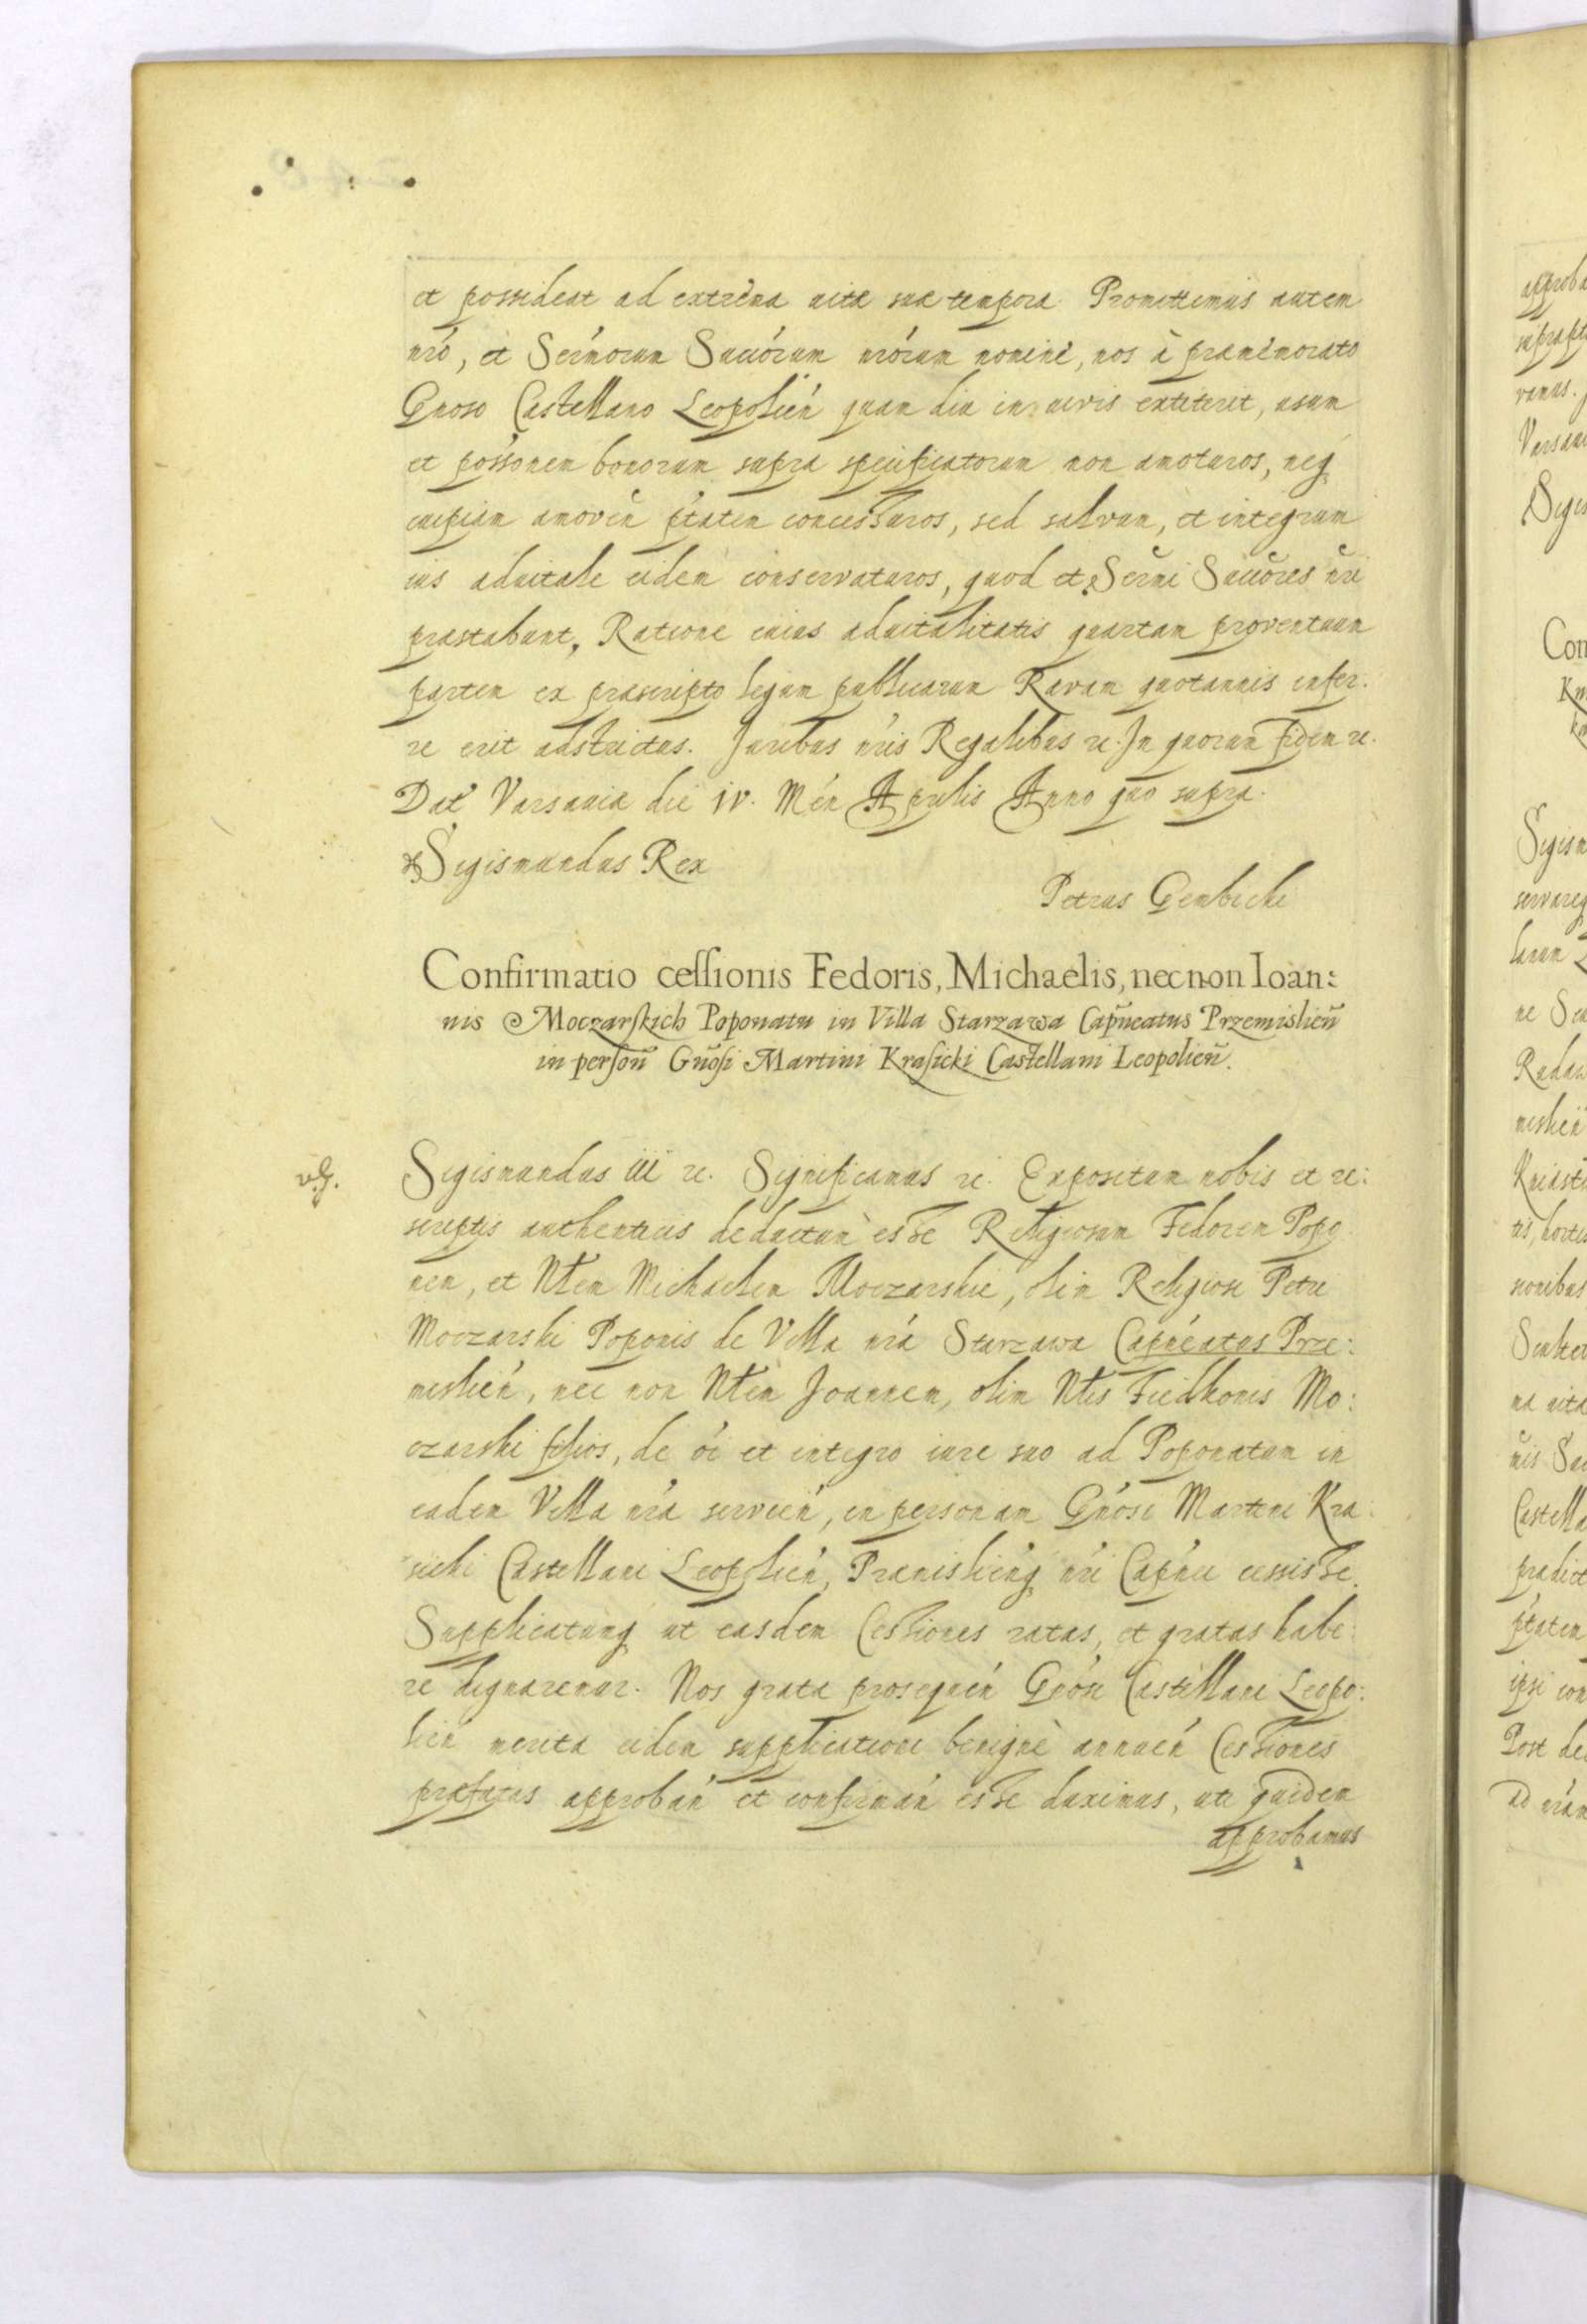 et possideat ad extrema vitæ suæ tempora. Promittimus autem
nro, et Sermorum Succorum nrorum nomine, nos à præmemorato
Gnoso Castellano Leopolien quam diu in vivis extiterit, usum
et possonem bonorum supra specificatorum non amoturos, neq
cuipiam amoven ptatem concessuros, sed salvum, et integrum
ius advitale eidem conservaturos, quod et Sermi Succores nri
præstabunt, Ratione cuius advitalitatis quartam proventuum
partem ex præscripto legum publicarum Ravam quotannis infer:
re erit adstrictus. Juribus nris Regalibus rc. In quorum fidem rc.
Dat Varsaviæ die iv. Men Aprilis Anno quo supra.
Sigismundus Rex
Petrus Gembicki
Confirmatio cessionis Fedoris, Michaelis, necnon Ioan:
nis Moczarskich Poponatu in Villa Starzawa Capneatus Przemislien
in person Gnosi Martini Krasicki Castellani Leopolien.
Sigismundus iii rc. Significamus rc. Expositum nobis et re:
scriptis authenticis deductum esse Religiosum Fedorem Popo
nem, et Nlem Michaelem Moczarskie, olim Religiosi Petri
Moczarski Poponis de Villa nra Starzawa Capneatus Prze:
mislien, nec non Nlem Joannem, olim Nlis Fiedkonis Mo:
czarski filios, de oi et integro iure suo ad Poponatum in
eadem Villa nra servien, in personam Gnosi Martini Kra:
sicki Castellani Leopolien, Præmislienq nri Capnei cessisse.
Supplicatumq ut easdem Cessiones ratas, et gratas habe:
re dignaremur. Nos grata prosequen Gnosi Castellani Leopo:
lien merita eidem supplicationi benignè annuen Cessiones
præfatas approban et confirman esse duximus, uti quidem
approbamus